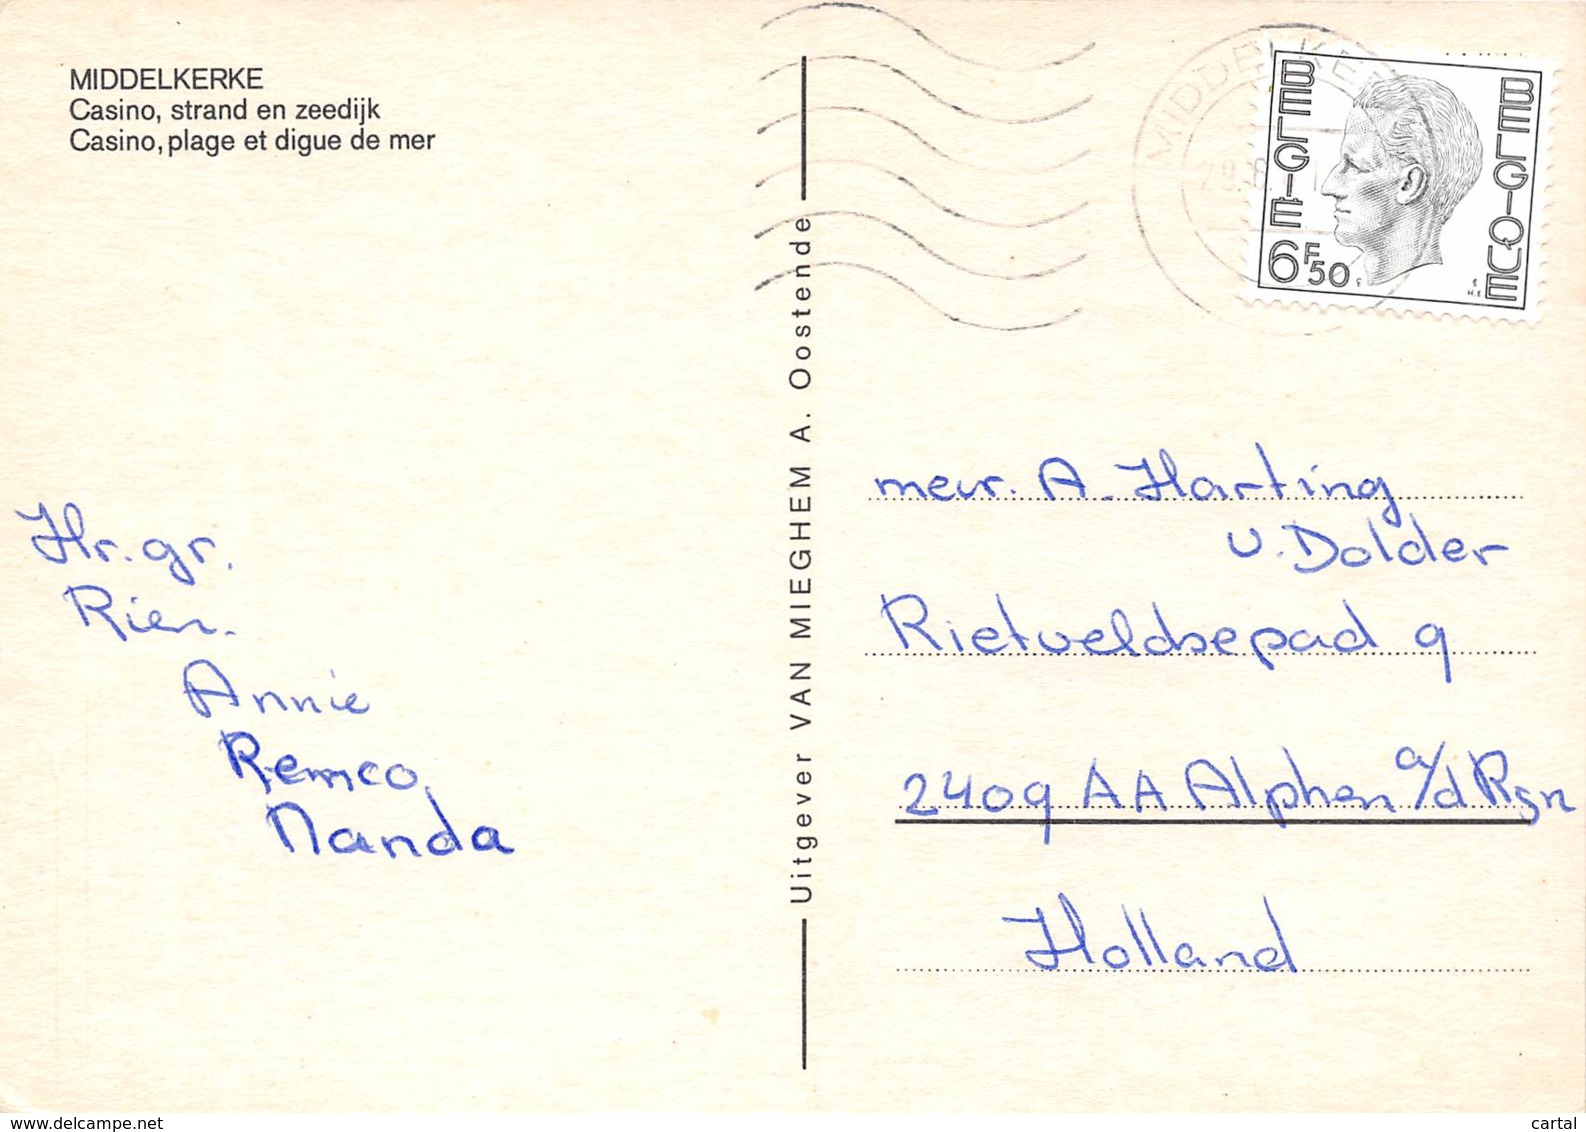 MIDDELKERKE
Casino, strand en zeedijk
Casino, plage et digue de mer
Hr. gr.
Rien.
Annie
Remco,
Nanda
Uitgever VAN MIEGHEM A. Oostende
MIDDELKE
BELGIE
BELGIQUE
6F50
mevr. A. Harting
v. Dolder
Rietveldsepad 9
2409 AA Alphen a/d Rijn
Holland
www.delcampe.net
cartal